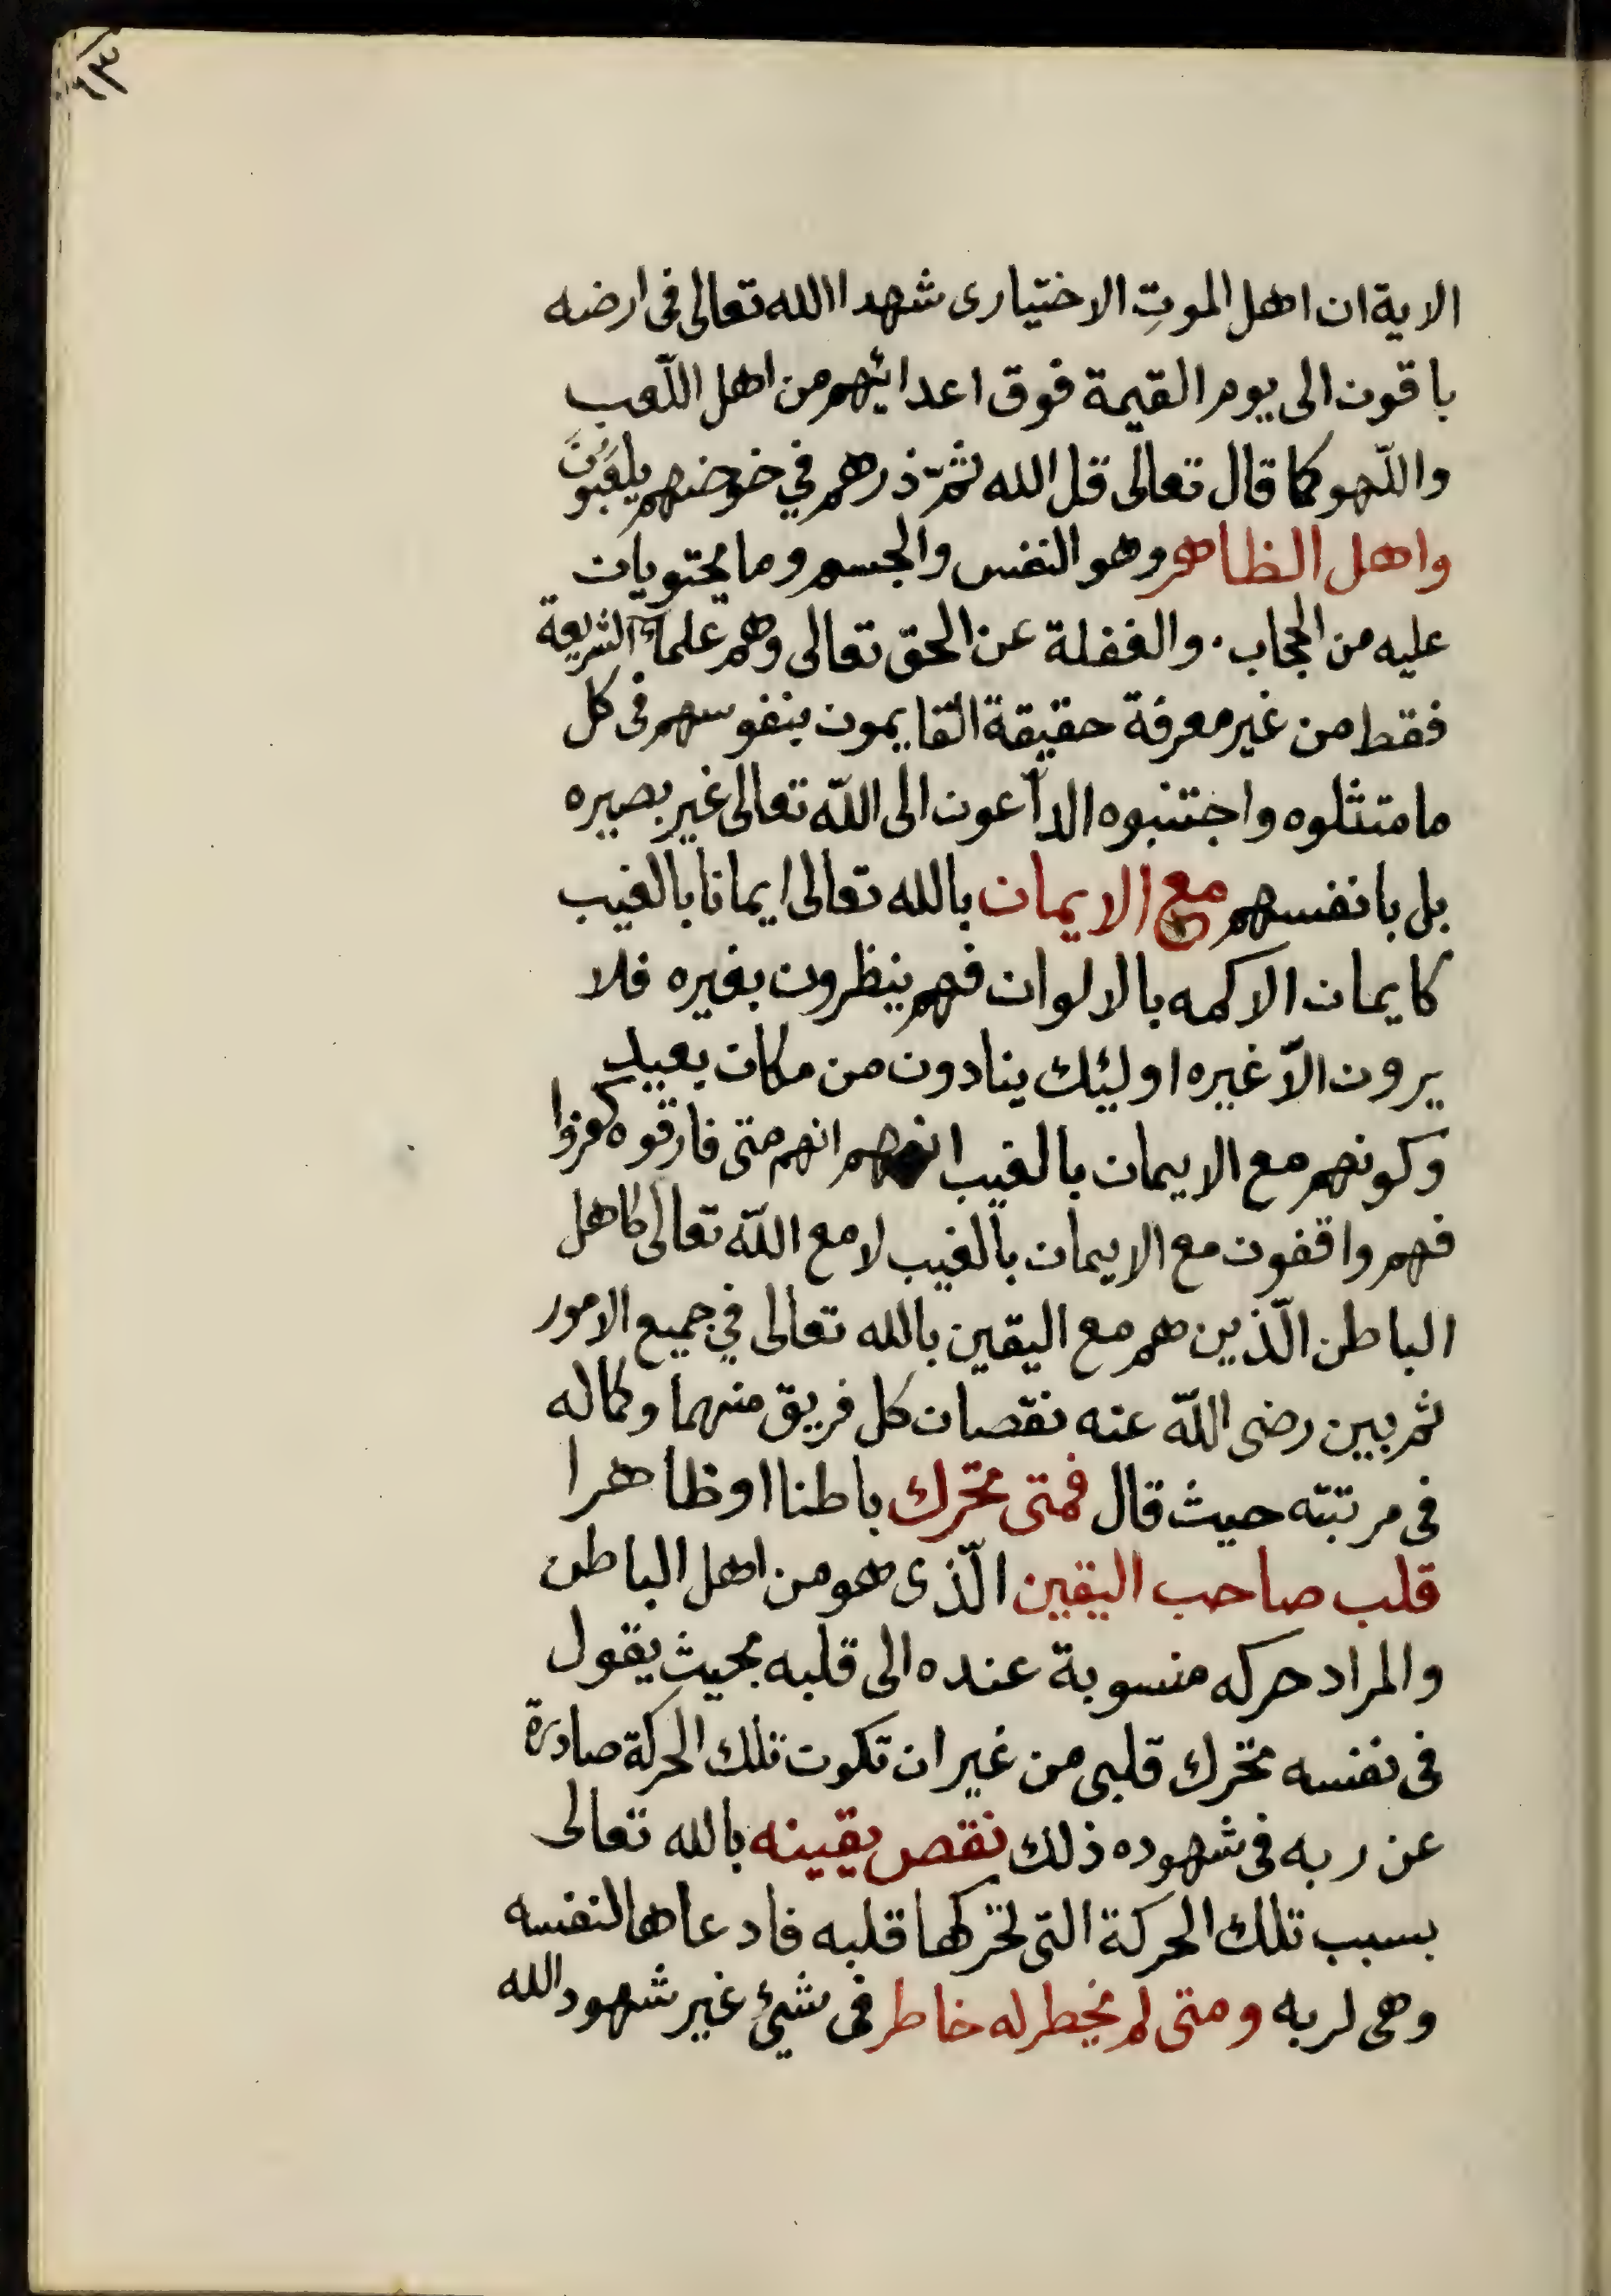 ٩٣
الاية ان اهل الموتِ الاختيارى شهدا الله تعالى فى ارضه
باقون الى يوم القيمة فوق اعدائهم من اهل اللّعب
واللّهو كما قال تعالى قل الله ثمّ ذرهم في خوضهم يلعبونَ
واهل الظاهر وهو النفس والجسم وما يحتويان
عليه من الحجاب. والغفلة عن الحق تعالى وهم علمآء الشريعة
فقط من غير معرفة حقيقة القايمون بنفوسهم فى كل
ما متثلوه واجتنبوه الدآعون الى اللّه تعالى غير بصيره
بل بانفسهم مع الايمان بالله تعالى ايمانا بالغيب
كايمان الاكمه بالالوان فهم ينظرون بغيره فلا
يرون الاّ غيره اوليئك ينادون من مكان بعيد
وكونهم مع الايمان بالغيب انهم متى فارقوه كفروا
فهم واقفون مع الايمان بالغيب لا مع اللّه تعالى كاهل
الباطن الّذين هم مع اليقين بالله تعالى في جميع الامور
ثم بين رضى اللّه عنه نقصان كل فريق منهما وكماله
فى مرتبته حيث قال فمتى تحرك باطنا او ظاهرا
قلب صاحب اليقين الّذى هو من اهل الباطن
والمراد حركه منسوبة عنده الى قلبه بحيث يقول
فى نفسه تحرك قلبى من غير ان تكون تلك الحركة صادرة
عن ربه فى شهوده ذلك نقص يقينه بالله تعالى
بسبب تلك الحركة التى تحركها قلبه فادعاها لنفسه
وهى لربه ومتى لم يخطر له خاطر فى شئ غير شهود الله